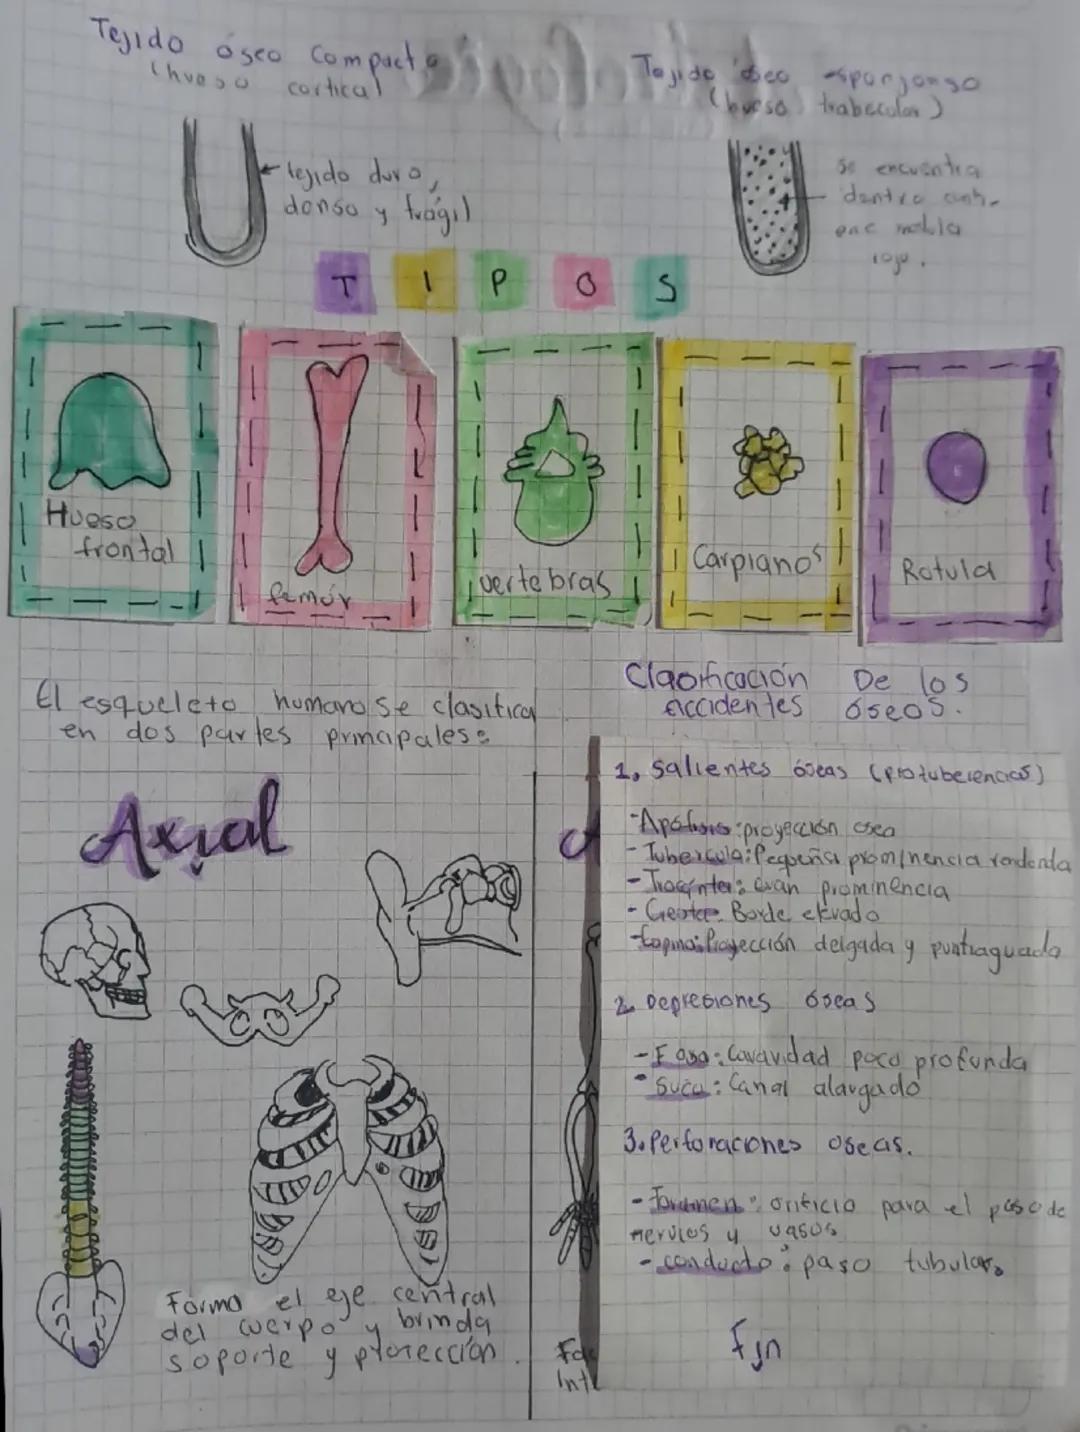 Tejido óseo compacto
(hueso cortical
tejido duro,
denso y frágil
Tejido óseo esponjoso
(hueso trabecular)
se encuentra
dentro
rojo.
T I P O S
Hueso
frontal
femúr
vertebras
Carpianos
Rotula
El esqueleto humano se clasifica
en dos partes principales:
Axial
Forma el eje central
del cuerpo y brinda
soporte y protección.
Clasificación De los
accidentes óseos.
1. Salientes óseas (protuberencias)
- Apófisis: proyección osea
- Tubercula: Pequeña prominencia rondonda
- Trocánter: Gran prominencia
- Cresta: Borde elevado
- Espina: Proyección delgada y puntiaguada
2. Depresiones óseas
- Fosa: Cavavidad poco profunda
- Suco: Canal alargado
3. Perforaciones oseas.
- Foramen: orificio para el paso de
nervios y vasos
- conducto: paso tubular.
Fin